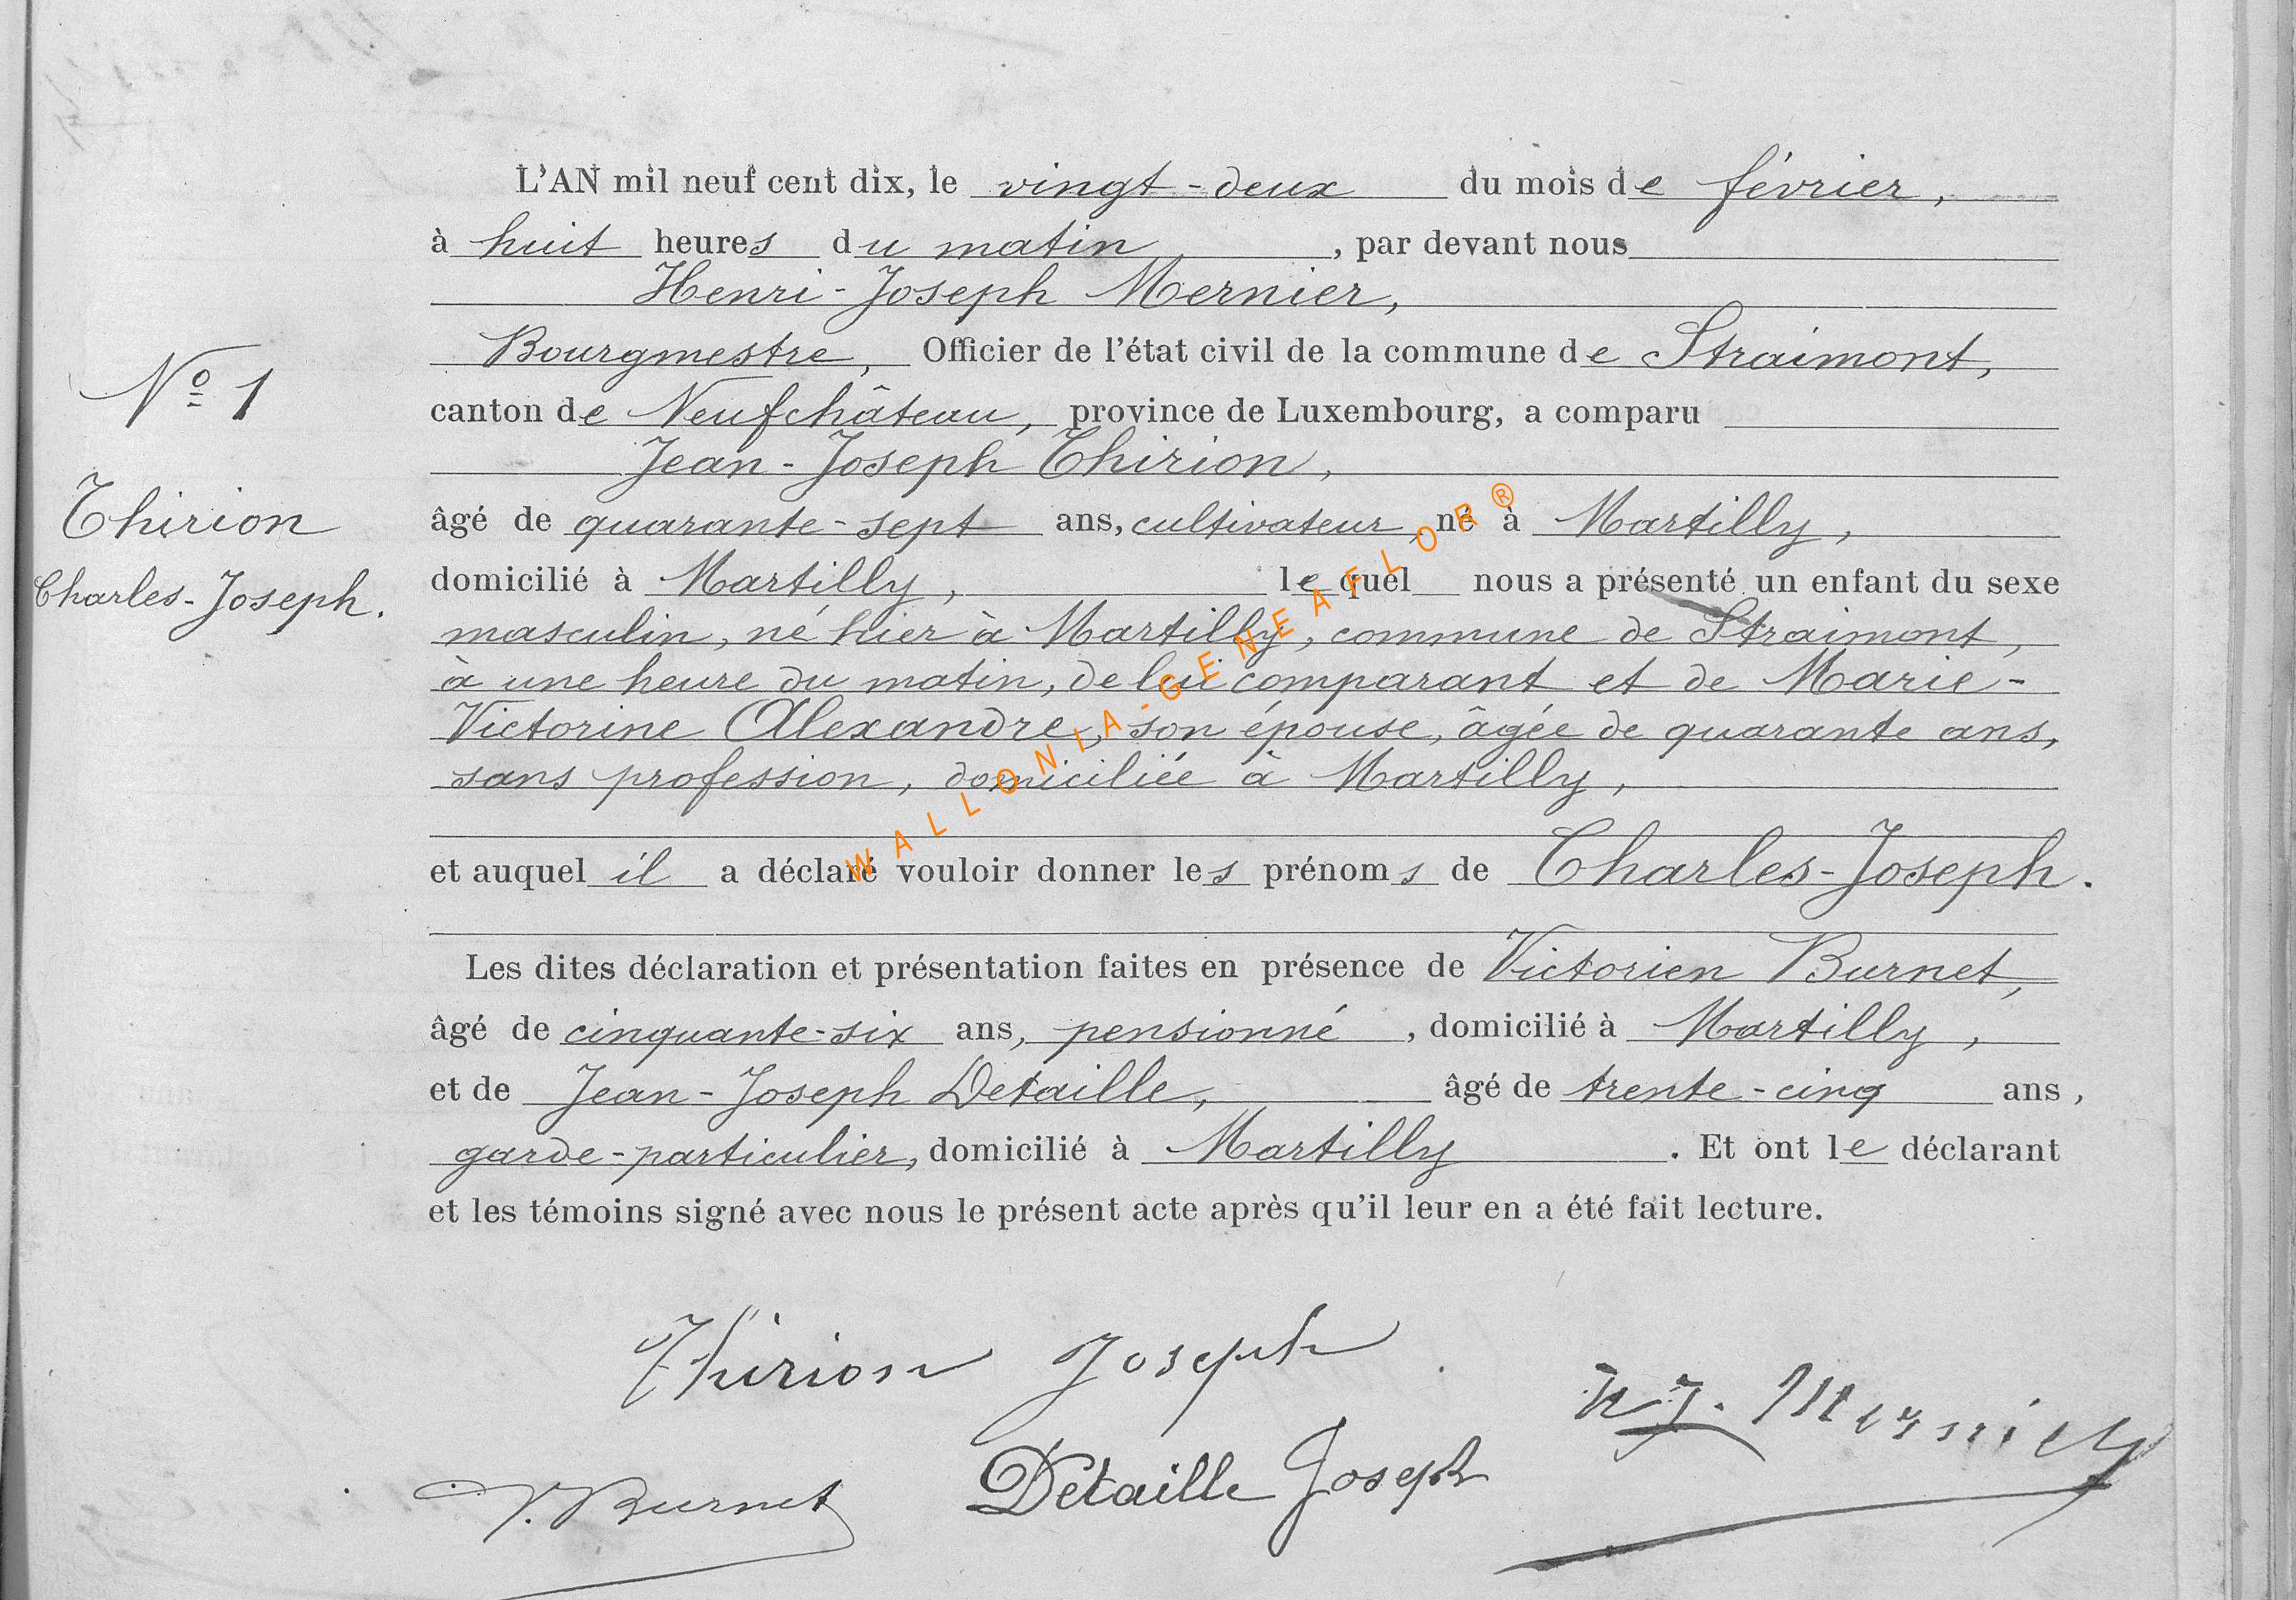 L'AN mil neuf cent dix, le vingt-deux du mois de février,
à huit heures du matin, par devant nous
Henri-Joseph Mernier,
Bourgmestre, Officier de l'état civil de la commune de Straimont,
canton de Neufchâteau, province de Luxembourg, a comparu
Jean-Joseph Thirion,
âgé de quarante-sept ans, cultivateur, né à Martilly,
domicilié à Martilly, lequel nous a présenté un enfant du sexe
masculin, né hier à Martilly, commune de Straimont,
à une heure du matin, de lui comparant et de Marie-
Victorine Alexandre, son épouse, âgée de quarante ans,
sans profession, domiciliée à Martilly,
et auquel il a déclaré vouloir donner les prénoms de Charles-Joseph.
Les dites déclaration et présentation faites en présence de Victorien Burnet,
âgé de cinquante-six ans, pensionné, domicilié à Martilly,
et de Jean-Joseph Detaille, âgé de trente-cinq ans,
garde-particulier, domicilié à Martilly. Et ont le déclarant
et les témoins signé avec nous le présent acte après qu'il leur en a été fait lecture.
N° 1
Thirion
Charles-Joseph.
Thirion Joseph
H J. Mernier
V. Burnet
Détaille Joseph
WALLONIA-GENEAFLOR®